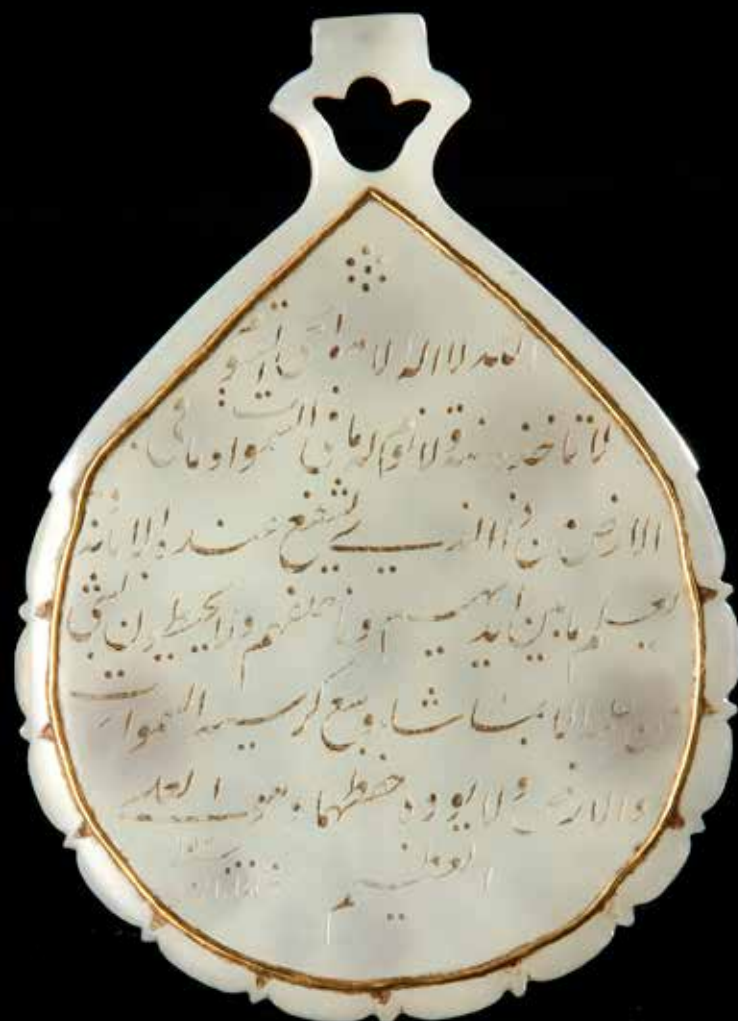 الله لا اله الا هو الحی القیوم
لا تاخذه سنة ولا نوم له ما فی السموات وما فی
الارض من ذا الذی یشفع عنده الا باذنه
یعلم ما بین ایدیهم وما خلفهم ولا یحیطون بشی
من علمه الا بما شاء وسع کرسیه السموات
والارض ولا یوده حفظهما وهو العلی
العظیم